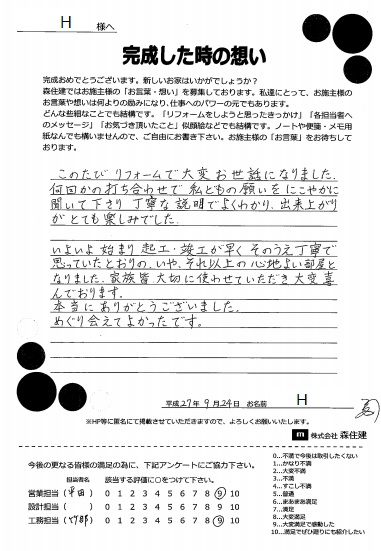 H 様へ
完成した時の想い
完成おめでとうございます。新しいお家はいかがでしょうか?
森住建ではお施主様の「お言葉・想い」を募集しております。私達にとって、お施主様の
お言葉や想いは何よりの励みになり、仕事へのパワーの元でもあります。
どんな些細なことでも結構です。「リフォームをしようと思ったきっかけ」「各担当者へ
のメッセージ」「お気づき頂いたこと」似顔絵などでも結構です。ノートや便箋・メモ用
紙なんでも構いませんので、ご自由にお書き下さい。お施主様の「お言葉」をお待ちして
おります。
このたびリフォームで大変お世話になりました。
何回かの打ち合わせで私どもの願いをにこやかに
聞いて下さり丁寧な説明でよくわかり、出来上がり
がとても楽しみでした。
いよいよ始まり起工・竣工が早くそのうえ丁寧で
思っていたとおりの、いや、それ以上の心地よい部屋と
なりました。家族皆大切に使わせていただき大変喜
んでおります。
本当にありがとうございました。
めぐり会えてよかったです。
平成27年9月24日 お名前 H
※HP等に匿名にて掲載させていただきますので、よろしくお願いいたします。
m 株式会社 森住建
今後の更なる皆様の満足の為に、下記アンケートにご協力下さい。
担当者名 該当する評価に○をつけて下さい。
営業担当(平田) 0 1 2 3 4 5 6 7 8 9 10
設計担当( ) 0 1 2 3 4 5 6 7 8 9 10
工務担当( ) 0 1 2 3 4 5 6 7 8 9 10
0…不満で今後は取引したくない
1…かなり不満
2…大変不満
3…不満
4…すこし不満
5…普通
6…まあまあ満足
7…満足
8…大変満足
9…大変満足で感動した
10…満足でぜひ廻りにも紹介したい